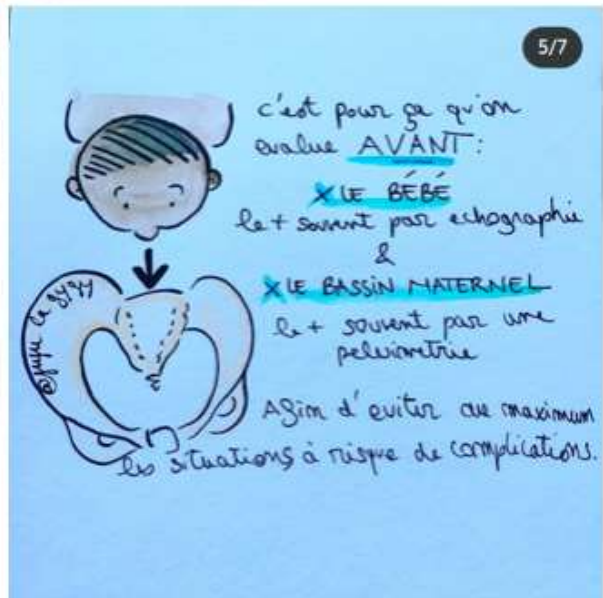 5/7
c'est pour ça qu'on
evalue AVANT:
x LE BÉBÉ
le + souvent par echographie
&
x LE BASSIN MATERNEL
le + souvent par une
pelvimetrie
Afin d'eviter au maximum
les situations à risque de complications.
@juju la gygy